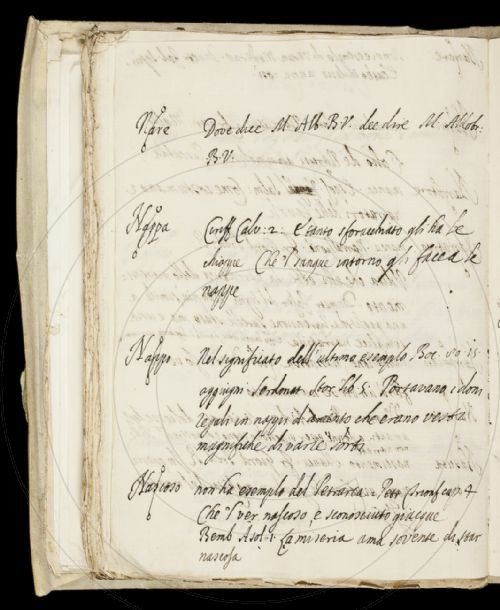 Nare Dove dice M. Alb. B.V. dee dire M. Aldobr.
B.V.
Nappa Ciriff. Calv: 2. E tanto sforacchiato gli ha le
Che 'l sangue intorno gli faccia le
nappe
Nappo Nel significato dell'ultimo esempio Boc. 80. 15
aggiugni Serdonat. Stor. lib. 5. Portavano i doni
regali in nappi d'argento che erano veste
magnifiche di varie sorti
Nascoso non ha esempio del Petrarca. Petr. cap. 4
Che 'l ver nascoso, e sconosciuto giacque
Bemb. Asol. 1. La miseria ama sovente di star
nascosa